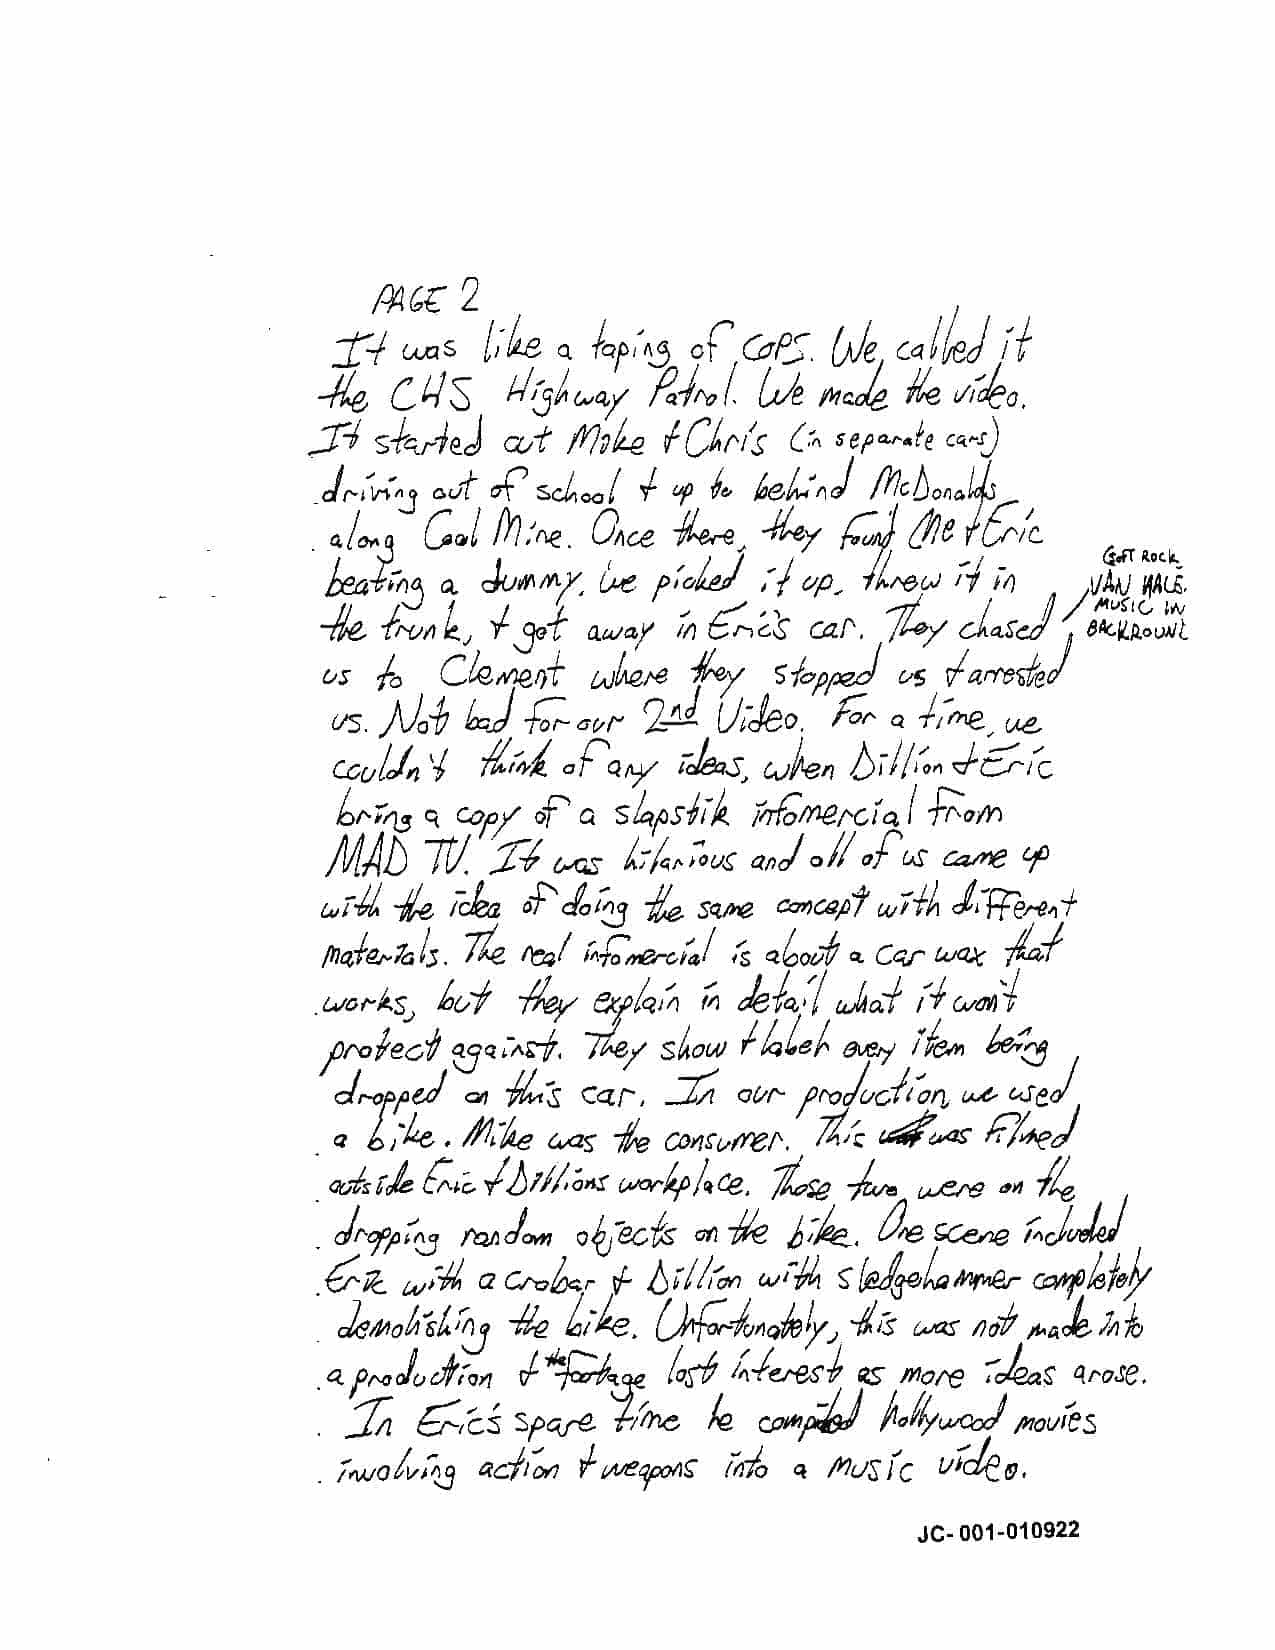 PAGE 2
It was like a taping of COPS. We called it
the CHS Highway Patrol. We made the video.
It started out Mike + Chris (in separate cars)
driving out of school + up to behind McDonalds
along Coal Mine. Once there, they found Me + Eric
beating a dummy. We picked it up, threw it in
the trunk, + got away in Eric's car. They chased
SOFT ROCK
VAN HALE.
MUSIC IN
BACKROUND
us to Clement where they stopped us + arrested
us. Not bad for our 2nd Video. For a time, we
couldn't think of any ideas, when Dillion + Eric
bring a copy of a slapstik infomercial from
MAD TV. It was hilarious and all of us came up
with the idea of doing the same concept with different
materials. The real infomercial is about a car wax that
works, but they explain in detail what it won't
protect against. They show + label every item being
dropped on this car. In our production, we used
a bike. Mike was the consumer. This was filmed
outside Eric + Dillions workplace. Those two were on the
dropping random objects on the bike. One scene included
Eric with a crobar + Dillion with sledgehammer completely
demolishing the bike. Unfortunately, this was not made into
a production + the footage lost interest as more ideas arose.
In Eric's spare time he compiled hollywood movies
involving action + weapons into a music video.
JC-001-010922